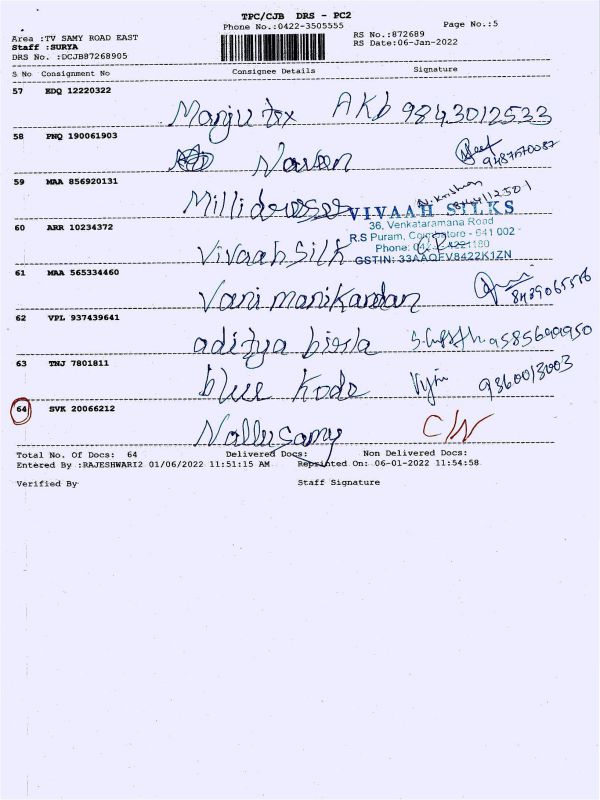 TPC/CJB DRS - PC2
Phone No.:0422-3505555
Page No.:5
Area :TV SAMY ROAD EAST
RS No.:872689
Staff :SURYA
RS Date:06-Jan-2022
DRS No. :DCJB87268905
S No Consignment No Consignee Details Signature
57 EDQ 12220322
Manju tex AKb 9843012533
58 PNQ 190061903
Naveen
59 MAA 856920131
Milli dresses
VIVAAH SILKS
36, Venkataramana Road
60 ARR 10234372
R.S Puram, Coimbatore - 641 002
Vivaah Silk
GSTIN: 33AAQFV8422K1ZN
61 MAA 565334460
Vani manikandan
62 VPL 937439641
aditya birla
63 TNJ 7801811
blue kode
64 SVK 20066212
Nallusamy C/N
Total No. Of Docs: 64 Delivered Docs: Non Delivered Docs:
Entered By :RAJESHWARI2 01/06/2022 11:51:15 AM Reprinted On: 06-01-2022 11:54:58
Verified By Staff Signature